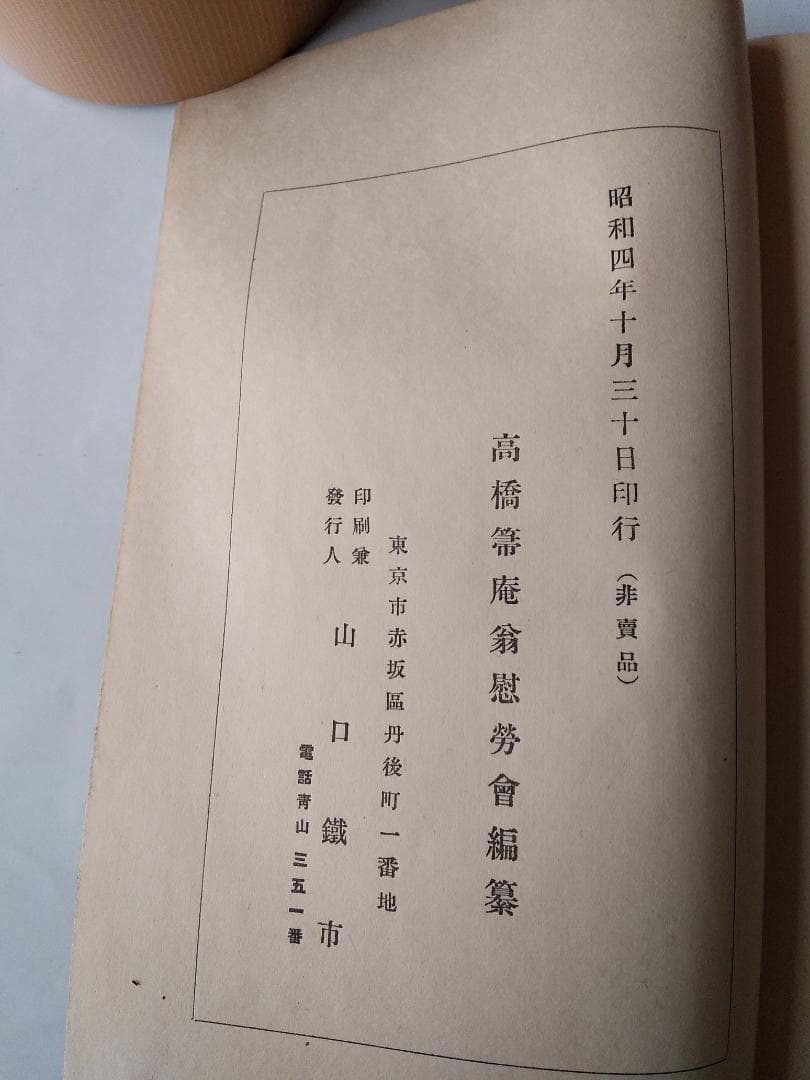 昭和四年十月三十日印行（非賣品）
高橋箒庵翁慰勞會編纂
東京市赤坂區丹後町一番地
印刷兼
發行人
山口鐵市
電話靑山三五一番